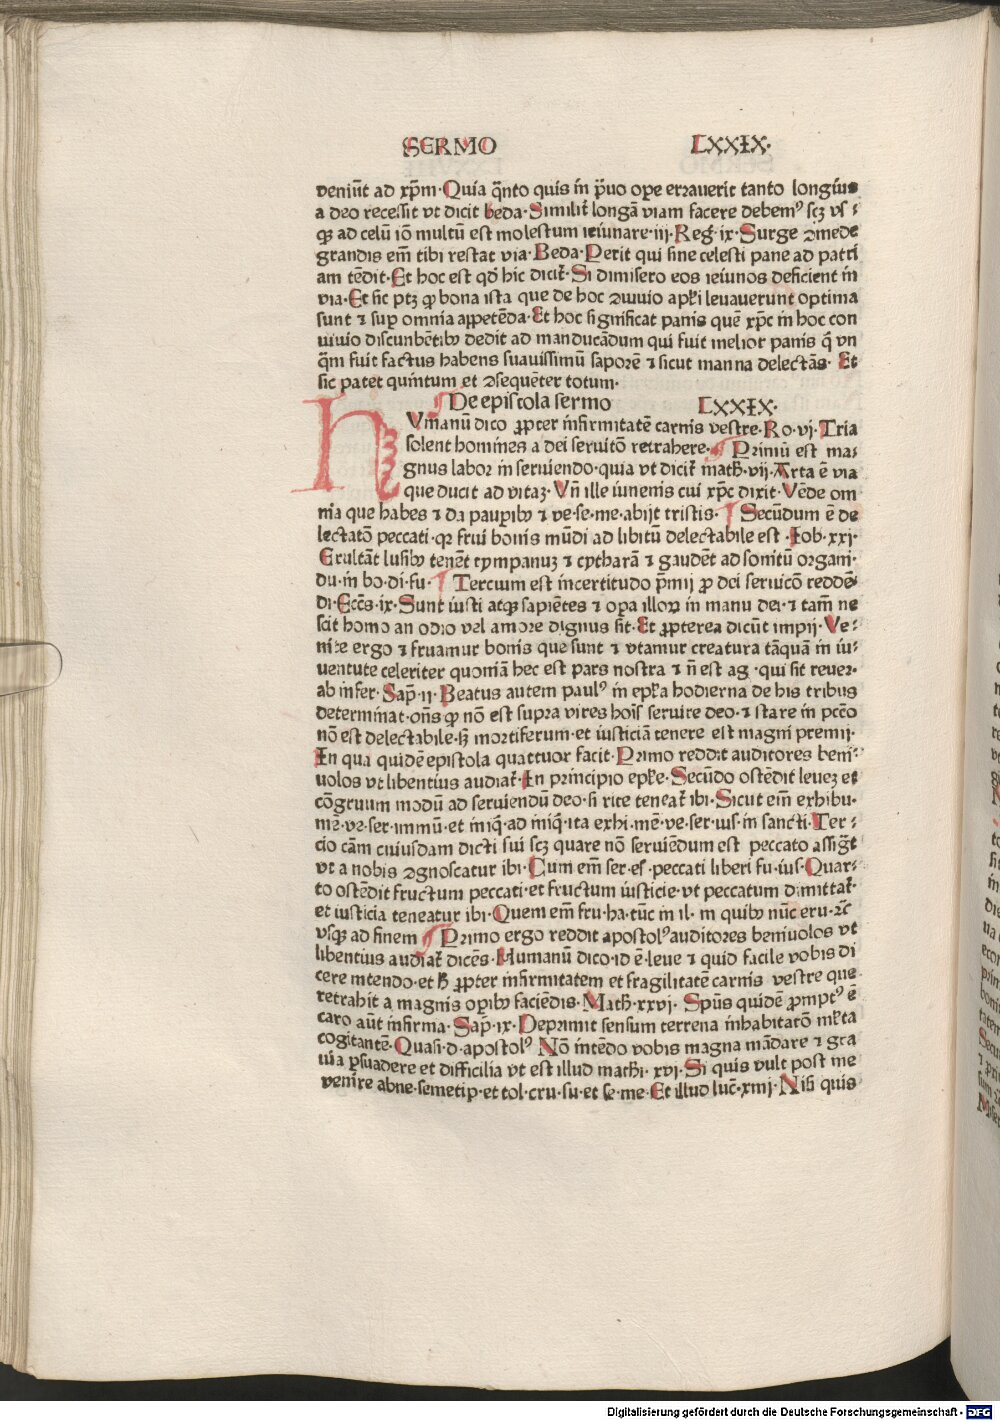 SERMO LXXIX·
veniūt ad xp̄m· Quia q̄nto quis in p̄uo ope erraverit tanto longius
a deo recessit vt dicit beda· Similit̄ longā viam facere debemꝰ scꝫ vs⸗
qꝫ ad celū iō multū est molestum ieiunare· iii· Reg· ix· Surge ꝯmede
grandis em̄ tibi restat via· Beda· Perit qui sine celesti pane ad patri
am tēdit· Et hoc est qd̄ hic dicit̄· Si dimisero eos ieiunos deficient in
via· Et sic ptꝫ ꝙ bona ista que de hoc ꝯuiuio apl̄i levauerunt optima
sunt ⁊ sup omnia appetēda· Et hoc significat panis quē xp̄c in hoc con
uiuio discunbētibꝫ dedit ad manducādum qui fuit melior panis q̄ vn
q̄m fuit factus habens suavissimū saporē ⁊ sicut manna delectās· Et
sic patet quintum et ꝯsequēter totum·
De epistola sermo LXXIX·
HVmanū dico ꝓpter infirmitatē carnis vestre· Ro· vi· Tria
solent homines a dei servitō retrahere· Primū est ma⸗
gnus labor in serviendo· quia vt dicit̄ math̄· vii· Arta ē via
que ducit ad vitaꝫ· Vn̄ ille iunenis cui xp̄c dixit· Vēde om
nia que habes ⁊ da paupibꝫ ⁊ ve· se· me· abijt tristis· Secūdum ē de
lectatō peccati· qꝛ frui bonis mūdi ad libitū delectabile est· Iob· xxi·
Erultāt lusibꝫ tenēt tympanuꝫ ⁊ cytharā ⁊ gaudēt ad sonitū organi·
du· in bo· di· fu· Tercium est incertitudo p̄mij ꝓ dei servicō reddē⸗
di· Ecc̄s· ix· Sunt iusti atqꝫ sapiētes ⁊ opa illoꝝ in manu dei· ⁊ tam̄ ne
scit homo an odio vel amore dignus sit· Et ꝓpterea dicūt impij· Ve⸗
nite ergo ⁊ fruamur bonis que sunt ⁊ vtamur creatura tāquā in iu⸗
uentute celeriter quoniā hec est pars nostra ⁊ n̄ est ag· qui sit rever·
ab infer· Sap̄· ii· Beatus autem paulꝰ in epl̄a hodierna de his tribus
determinat· on̄s ꝙ nō est supra vires hoīs servire deo· ⁊ stare in pcc̄o
nō est delectabile· sꝫ mortiferum· et iusticiā tenere est magni premij·
In qua quidē epistola quattuor facit· Primo reddit auditores beni⸗
uolos vt libentius audiat̄· In principio epl̄e· Secūdo ostēdit leueꝫ et
cōgruum modū ad serviendū deo· si rite teneat̄ ibi· Sicut em̄ exhibu·
mē· ve· ser· immū· et iniq̄· ad iniq̄· ita exhi· mē· ve· ser· ius· in sancti· Ter⸗
cio cām cuiusdam dicti sui scꝫ quare nō serviēdum est peccato assigt̄
vt a nobis ꝯgnoscatur ibi· Cum em̄ ser· es· peccati liberi fu· ius· Quar⸗
to ostēdit fructum peccati· et fructum iusticie· vt peccatum dimittat̄·
et iusticia teneatur ibi· Quem em̄ fru· ha· tūc in il· in quibꝫ nūc eru· ⁊c̄
vsqꝫ ad finem Primo ergo reddit apostolꝰ auditores benivolos vt
libentius audiat̄ dicēs· Humanū dico· id ē leue ⁊ quid facile vobis di
cere intendo· et h̄ ꝓpter infirmitatem et fragilitatē carnis vestre que
retrahit a magnis opibꝫ faciēdis· Math̄· xxvi· Sp̄us quidē prompt꯰ ē
caro aūt infirma· Sap̄· ix· Deprimit sensum terrena inhabitatō ml̄ta
cogitantē· Quasi· d· apostolꝰ Nō intēdo vobis magna mādare ⁊ gra
uia psuadere et difficilia vt est illud mathi· xvi· Si quis vult post me
venire abne· semetip· et tol· cru· su· et se· me· Et illud luc̄· xiiij· Nisi quis
Digitalisierung gefördert durch die Deutsche Forschungsgemeinschaft - DFG